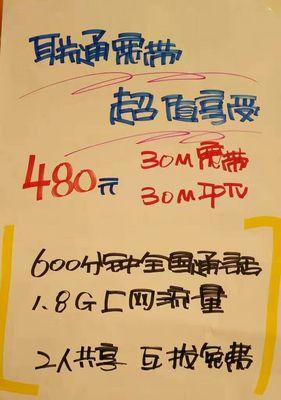 联通宽带
超值享受
480元
30M宽带
30M IPTV
600分钟全国通话
1.8G上网流量
2人共享 互拨免费